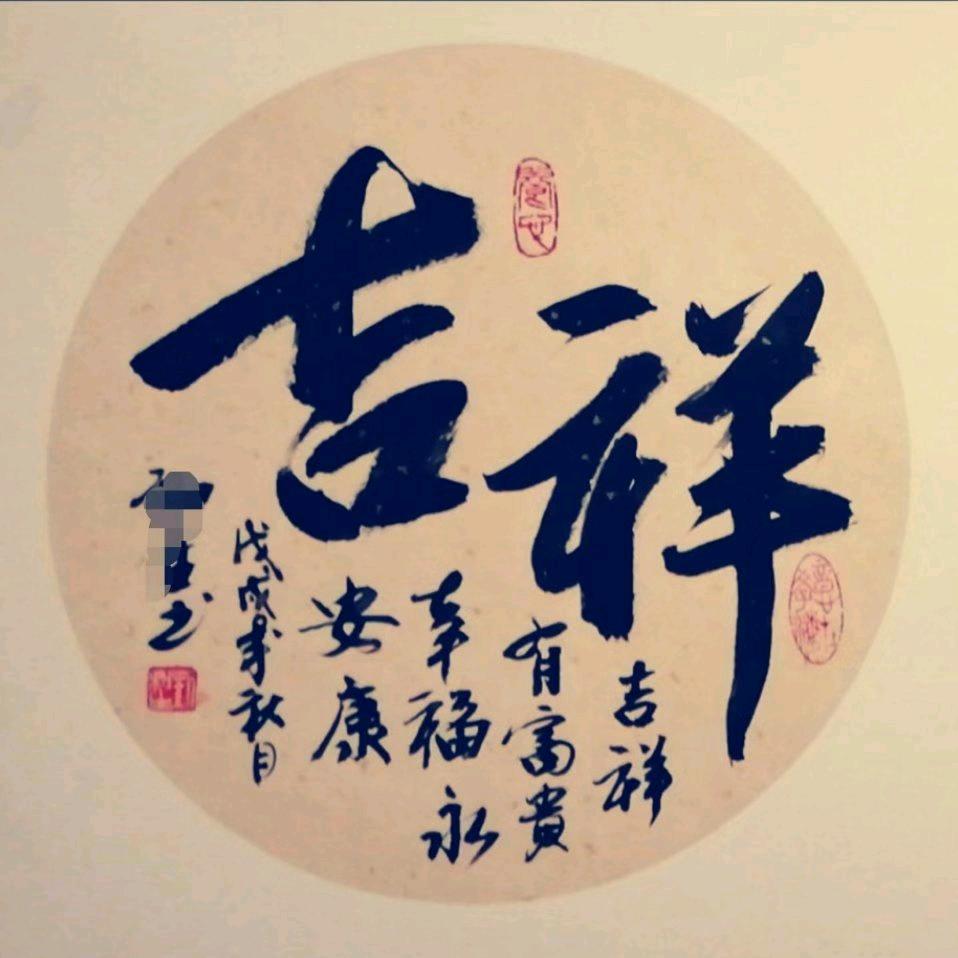 吉祥
吉祥
有富貴
幸福永
安康
戊戌年秋月
书